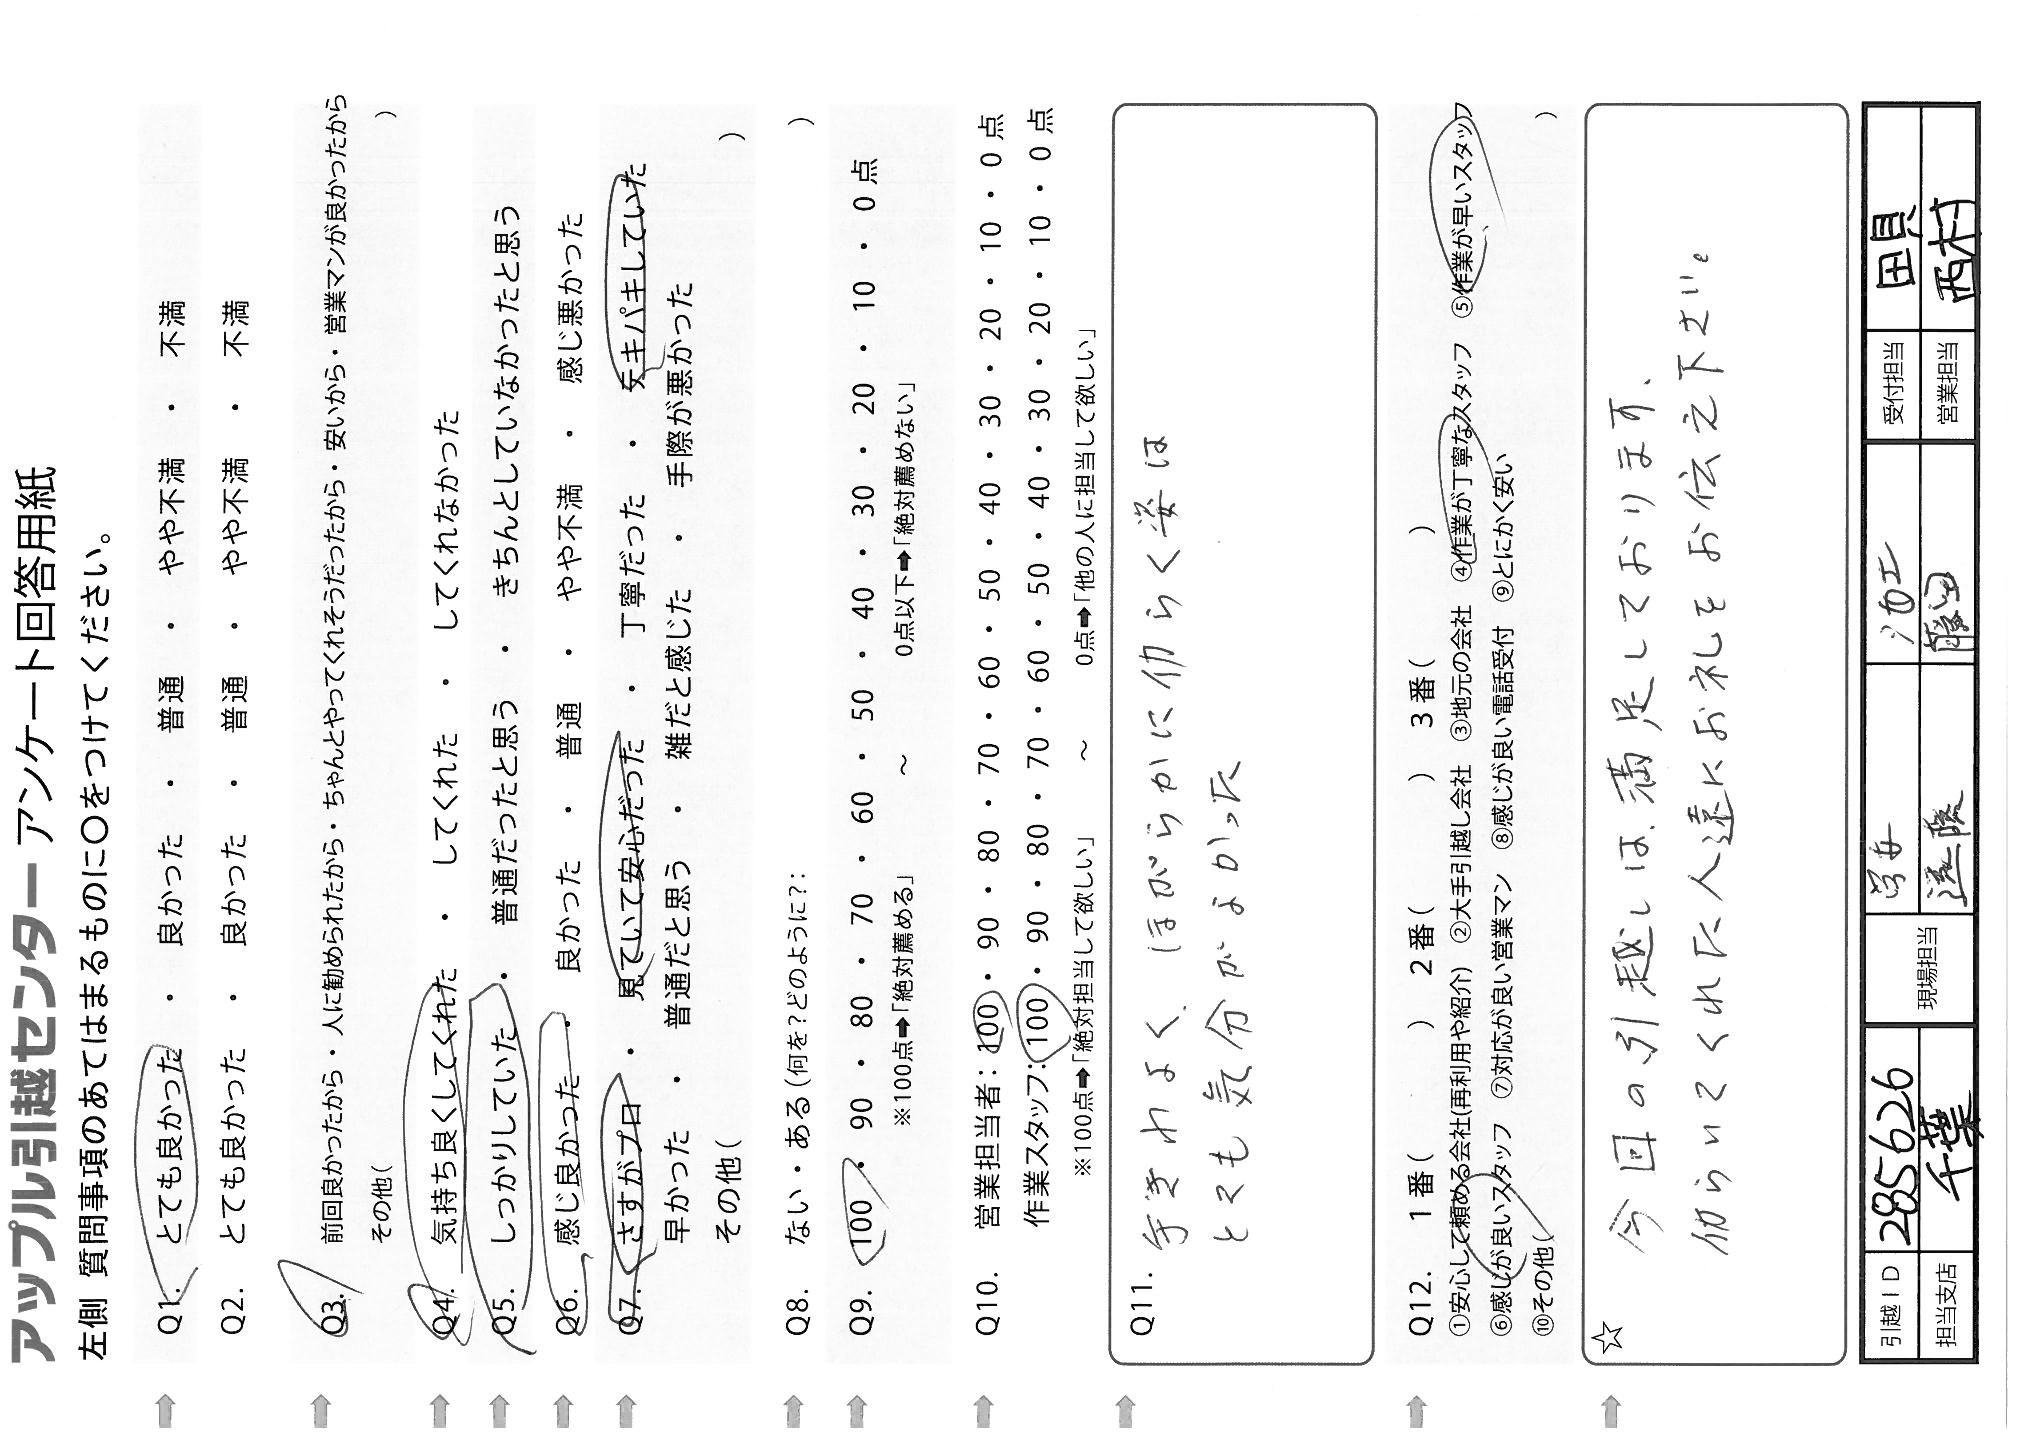 アップル引越センター アンケート回答用紙
左側 質問事項のあてはまるものに○をつけてください。
Q1. とても良かった ・ 良かった ・ 普通 ・ やや不満 ・ 不満
Q2. とても良かった ・ 良かった ・ 普通 ・ やや不満 ・ 不満
Q3. 前回良かったから・人に勧められたから・ちゃんとやってくれそうだったから・安いから・営業マンが良かったから
その他( )
Q4. 気持ち良くしてくれた ・ してくれた ・ してくれなかった
Q5. しっかりしていた ・ 普通だったと思う ・ きちんとしていなかったと思う
Q6. 感じ良かった ・ 良かった ・ 普通 ・ やや不満 ・ 感じ悪かった
Q7. さすがプロ ・ 見ていて安心だった ・ 丁寧だった ・ テキパキしていた
早かった ・ 普通だと思う ・ 雑だと感じた ・ 手際が悪かった
その他( )
Q8. ない・ある(何を?どのように?: )
Q9. 100 ・ 90 ・ 80 ・ 70 ・ 60 ・ 50 ・ 40 ・ 30 ・ 20 ・ 10 ・ 0 点
※100点➡「絶対薦める」 ～ 0点以下➡「絶対薦めない」
Q10. 営業担当者:100・90・80・70・60・50・40・30・20・10・0点
作業スタッフ:100・90・80・70・60・50・40・30・20・10・0点
※100点➡「絶対担当して欲しい」 ～ 0点➡「他の人に担当して欲しい」
Q11. 手ぎわよく、ほがらかに仂らく姿は
とても気分がよかった
Q12. 1番( ) 2番( ) 3番( )
①安心して頼める会社(再利用や紹介) ②大手引越し会社 ③地元の会社 ④作業が丁寧なスタッフ ⑤作業が早いスタッフ
⑥感じが良いスタッフ ⑦対応が良い営業マン ⑧感じが良い電話受付 ⑨とにかく安い
⑩その他( )
☆
今回の引越しは、満足しております、
仂らいてくれた人達にお礼をお伝え下さい。
引越ID 285626 現場担当 受付担当
担当支店 千葉 遠藤 藤田 営業担当 西村